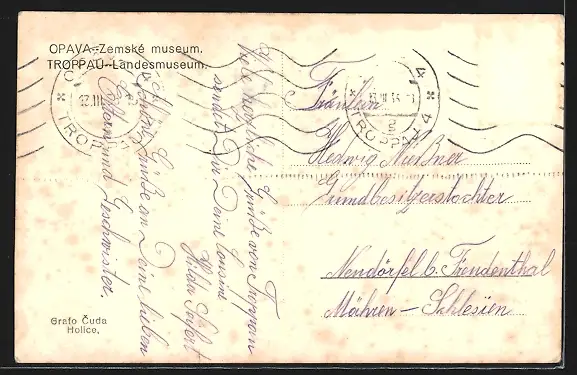 OPAVA--Zemské museum.
TROPPAU--Landesmuseum.
TROPPAU 4
TROPPAU 4
Viele herzliche Grüße von Troppau
sendet Dir Deine Cousine
Hilda Seifert
Grüße an Deine lieben
Eltern und Geschwister.
Fräulein
Hedwig Meißner
Grundbesitzerstochter
Neudörfel b. Freudenthal
Mähren – Schlesien
Grafo Čuda
Holice,